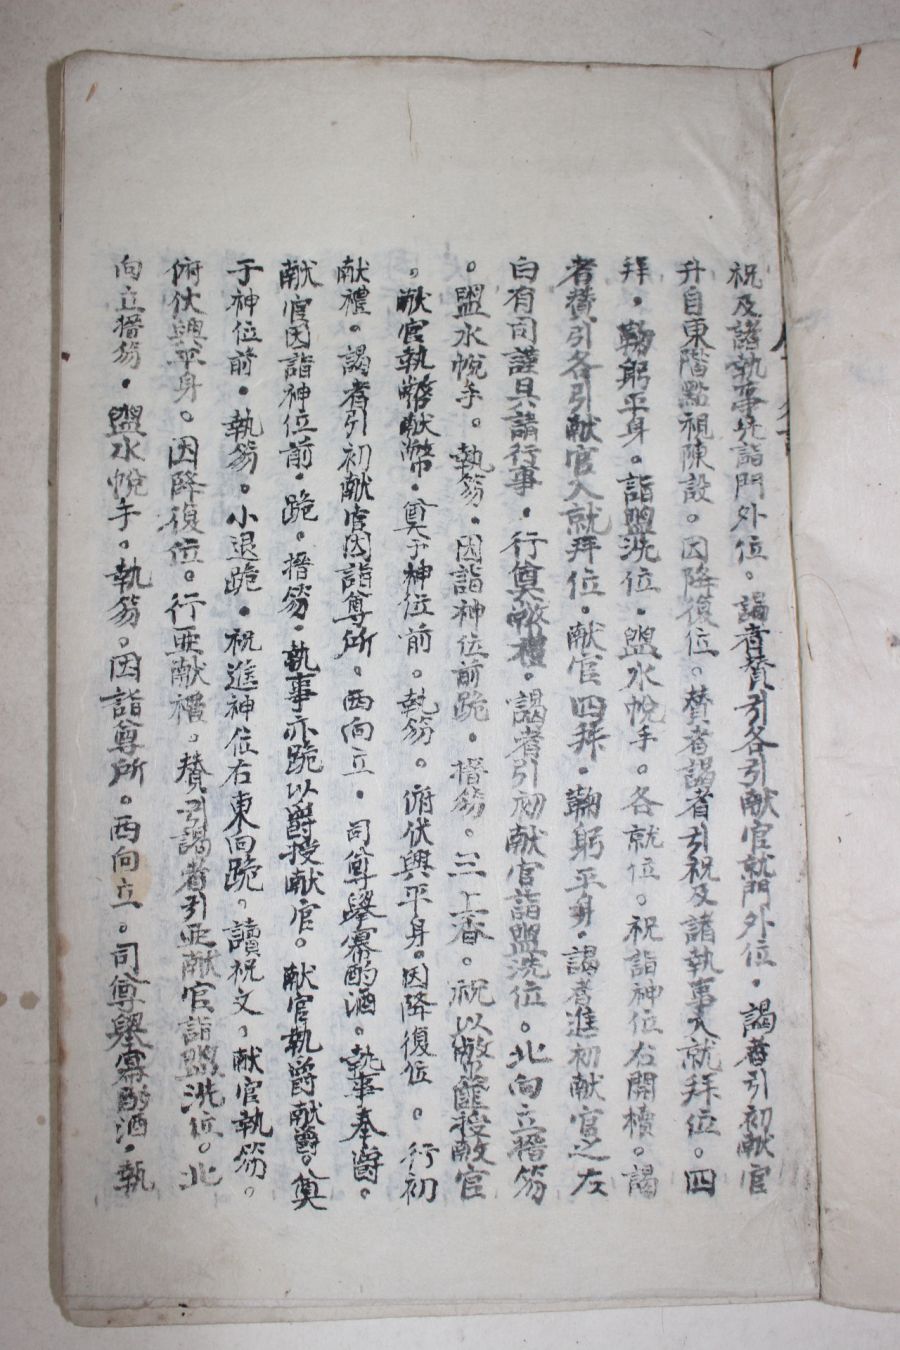 祝及諸執事先詣門外位。謁者賛引各引献官就門外位。謁者引初献官
升自東階點視陳設。因降復位。賛者謁者引祝及諸執事入就拜位。四
拜。鞠躬平身。詣盥洗位。盥水帨手。各就位。祝詣神位右開櫝。謁
者賛引各引献官入就拜位。献官四拜。鞠躬平身。謁者進初献官之左
白有司謹具請行事。行奠幣禮。謁者引初献官詣盥洗位。北向立搢笏
。盥水帨手。執笏。因詣神位前跪。搢笏。三上香。祝以幣篚授献官
。献官執幣献幣。奠于神位前。執笏。俯伏興平身。因降復位。行初
献禮。謁者引初献官因詣尊所。西向立。司尊擧冪酌酒。執事奉爵。
献官因詣神位前。跪。搢笏。執事亦跪以爵授献官。献官執爵献爵。奠
于神位前。執笏。小退跪。祝進神位右東向跪。讀祝文。献官執笏。
俯伏興平身。因降復位。行亜献禮。賛引謁者引亜献官詣盥洗位。北
向立搢笏。盥水帨手。執笏。因詣尊所。西向立。司尊擧冪酌酒。執